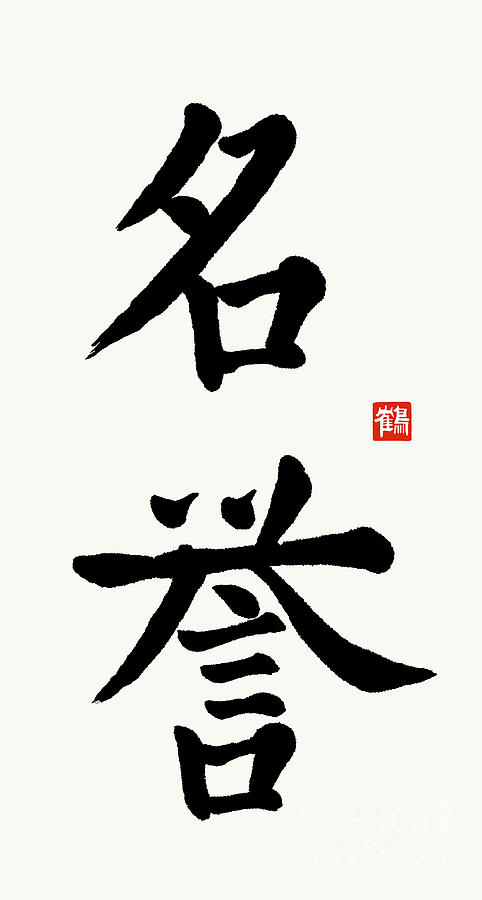 名
誉
鶴
fine art
america